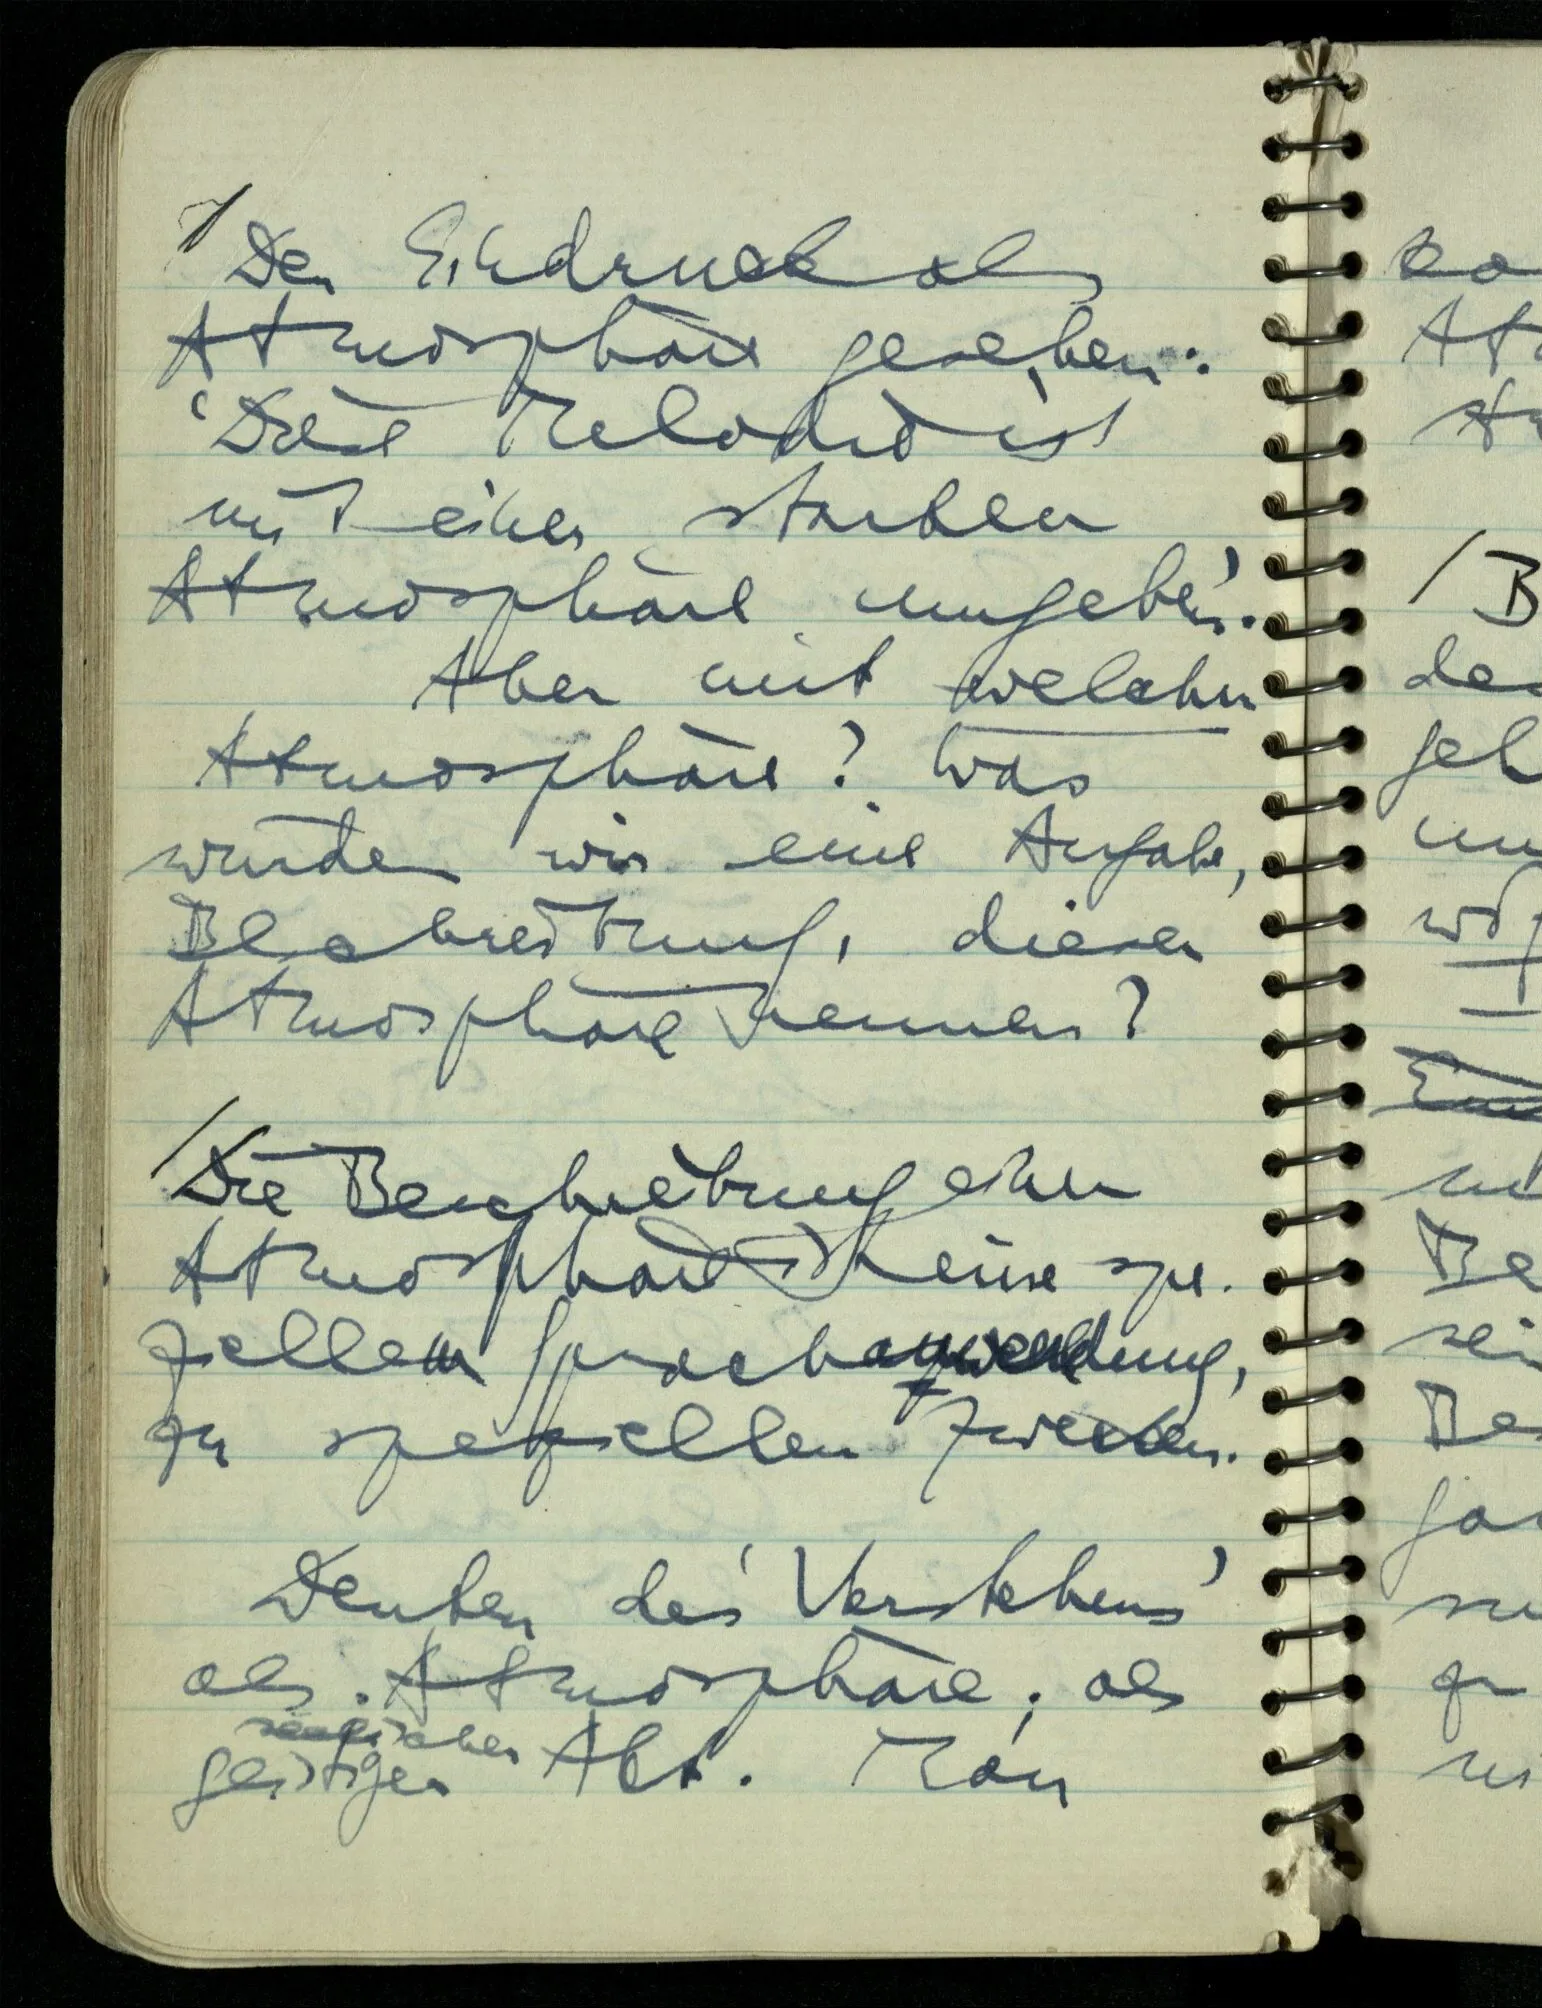 / Der Eindruck als
Atmosphäre gesehen:
'Diese Melodie ist
mit einer starken
Atmosphäre umgeben'.
Aber mit welcher
Atmosphäre? Was
würden wir eine Angabe,
Beschreibung, dieser
Atmosphäre nennen?
/ Die Beschreibung einer
Atmosphäre ist eine spe-
ziellen Sprachanwendung,
zu speziellen Zwecken.
Deuten des 'Verstehens'
als Atmosphäre; als
seelischer
geistiger Akt. Man
At
/ B
de
geh
Be
sei
Be